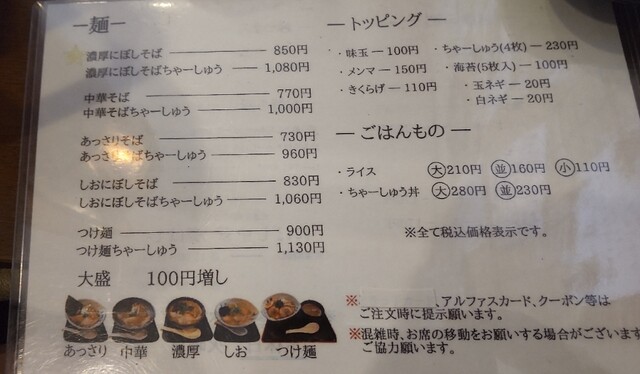 ー麺ー
濃厚にぼしそば 850円
濃厚にぼしそばちゃーしゅう 1,080円
中華そば 770円
中華そばちゃーしゅう 1,000円
あっさりそば 730円
あっさりそばちゃーしゅう 960円
しおにぼしそば 830円
しおにぼしそばちゃーしゅう 1,060円
つけ麺 900円
つけ麺ちゃーしゅう 1,130円
大盛 100円増し
あっさり 中華 濃厚 しお つけ麺
ー トッピング ー
・味玉 ― 100円 ・ちゃーしゅう(4枚) ― 230円
・メンマ ― 150円 ・海苔(5枚入) ― 100円
・きくらげ ― 110円 ・玉ネギ ― 20円
・白ネギ ― 20円
ー ごはんもの ー
・ライス 大210円 並160円 小110円
・ちゃーしゅう丼 大280円 並230円
※全て税込価格表示です。
※ 、アルファスカード、クーポン等は
ご注文時に提示願います。
※混雑時、お席の移動をお願いする場合がございます
ご協力願います。